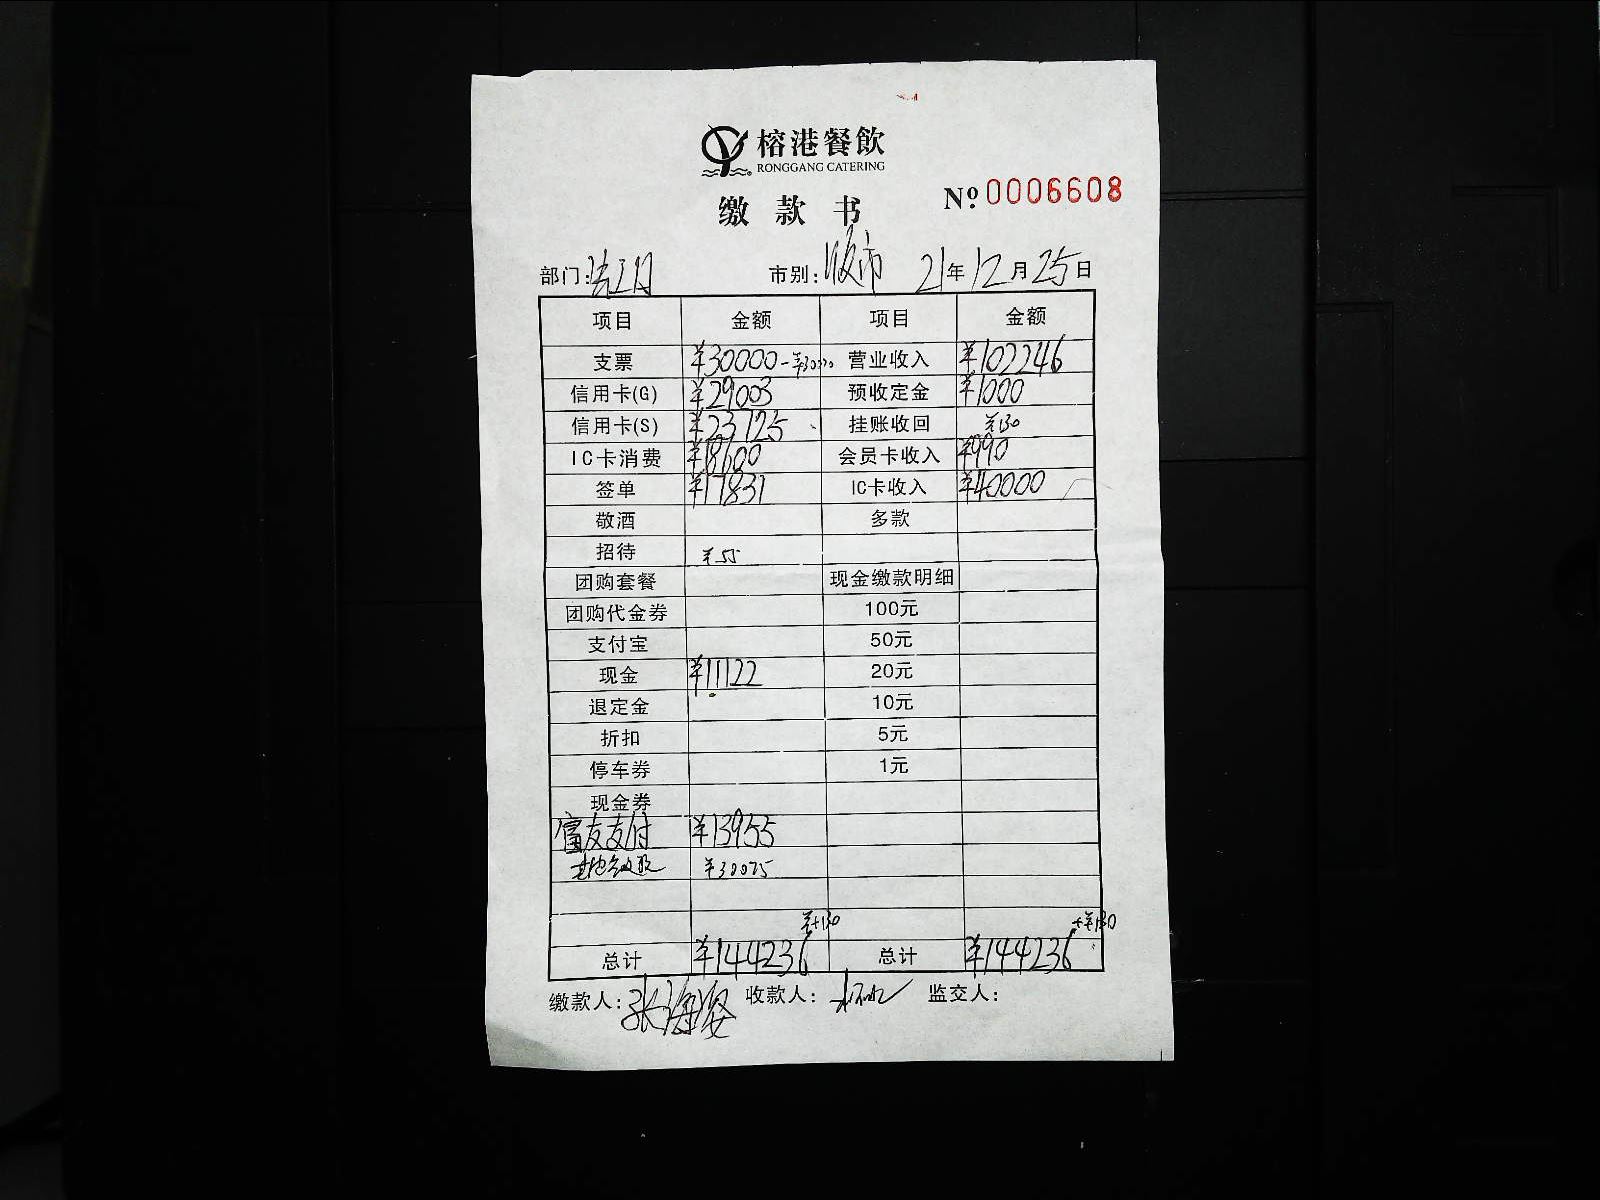 榕港餐飲
RONGGANG CATERING
缴款书 №0006608
部门: 市别: 晚市 21年12月25日
项目 金额 项目 金额
支票 ¥30000 营业收入 ¥102246
信用卡(G) ¥29003 预收定金 ¥1000
信用卡(S) ¥23725 挂账收回 ¥130
IC卡消费 ¥18600 会员卡收入 ¥990
签单 ¥17831 IC卡收入 ¥40000
敬酒 多款
招待 ¥55
团购套餐 现金缴款明细
团购代金券 100元
支付宝 50元
现金 ¥11122 20元
退定金 10元
折扣 5元
停车券 1元
现金券
富友支付 ¥13955
¥30075
¥+130 +¥130
总计 ¥144236 总计 ¥144236
缴款人: 张海燕 收款人: 监交人: